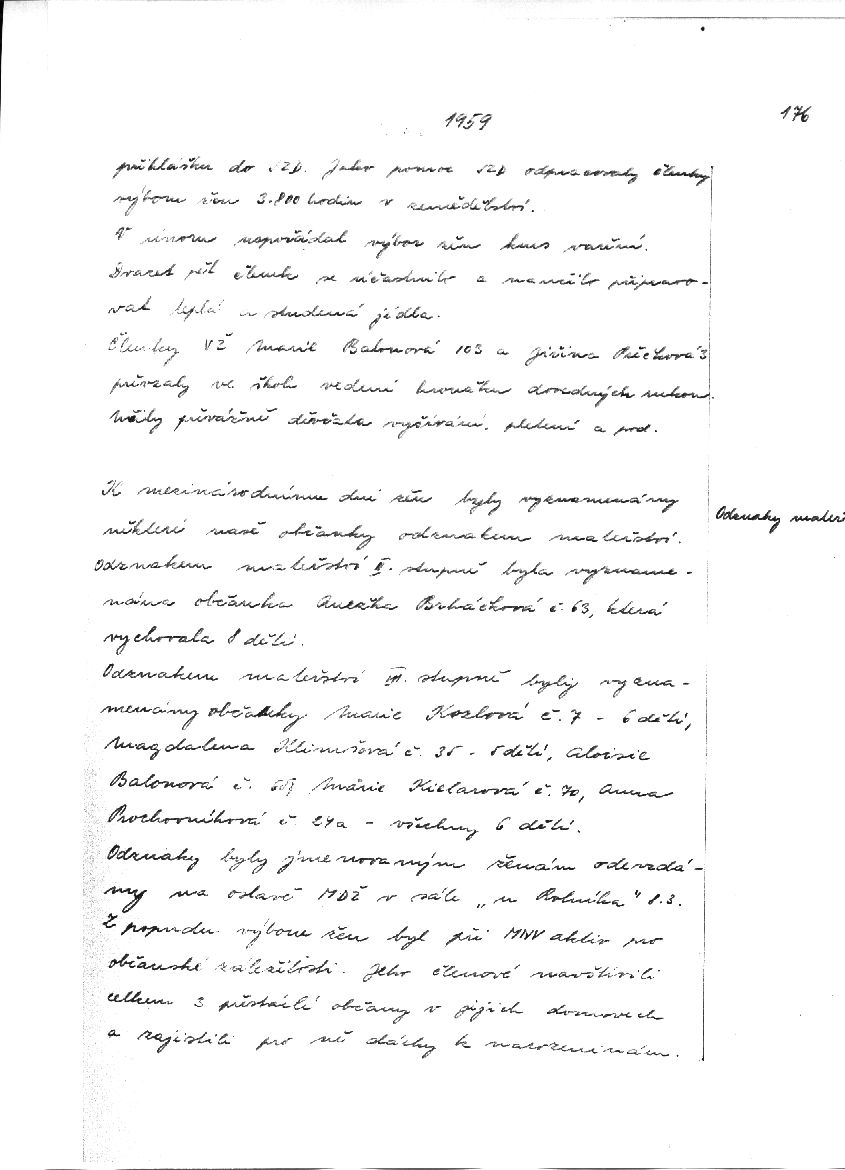 1959
176
přihlášku do JZD. Jako pomoc JZD odpracovaly členky
výboru žen 3.800 hodin v zemědělství.
V únoru uspořádal výbor žen kurs vaření.
Dvacet pět členek se účastnilo a naučilo připravo-
vat teplá i studená jídla.
Členky VŽ Marie Balonová 103 a Jiřina
převzaly ve škole vedení kroužku dovedných rukou.
Učily převážně děvčata vyšívání, pletení a pod.
K mezinárodnímu dni žen byly vyznamenány
některé naše občanky odznakem mateřství.
Odznaky mateř
Odznakem mateřství II. stupně byla vyzname-
nána občanka Anežka Brháčková č. 63, která
vychovala 8 dětí.
Odznakem mateřství III. stupně byly vyzna-
menány občanky Marie Kozlová č. 7 - 6 dětí,
Magdalena Klimšová č. 35 - 5 dětí, Aloisie
Balonová č. Marie Kielarová č. 70, Anna
Prochovníková č. 24a - všechny 6 dětí.
Odznaky byly jmenovaným ženám odevzdá-
ny na oslavě MDŽ v sále „u Rolníka" 8.3.
Z popudu výboru žen byl při MNV aktiv pro
občanské záležitosti. Jeho členové navštívili
celkem 3 přestárlé občany v jejich domovech
a zajistili pro ně dárky k narozeninám.